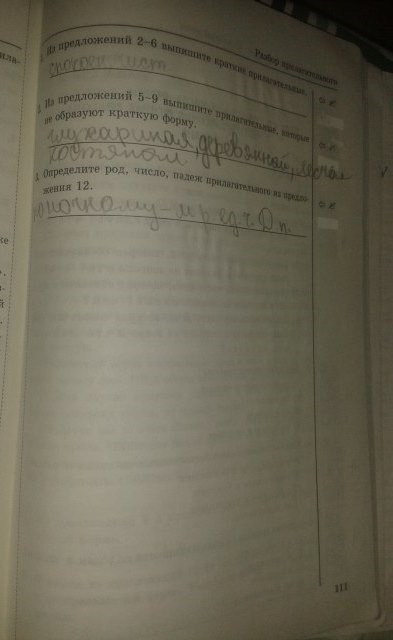 Разбор прилагательного
Из предложений 2–6 выпишите краткие прилагательные.
чист
Из предложений 5–9 выпишите прилагательные, которые
не образуют краткую форму.
деревянной,
костяном
Определите род, число, падеж прилагательного из предло-
жения 12.
– м.р. ед.ч. Д.п.
111